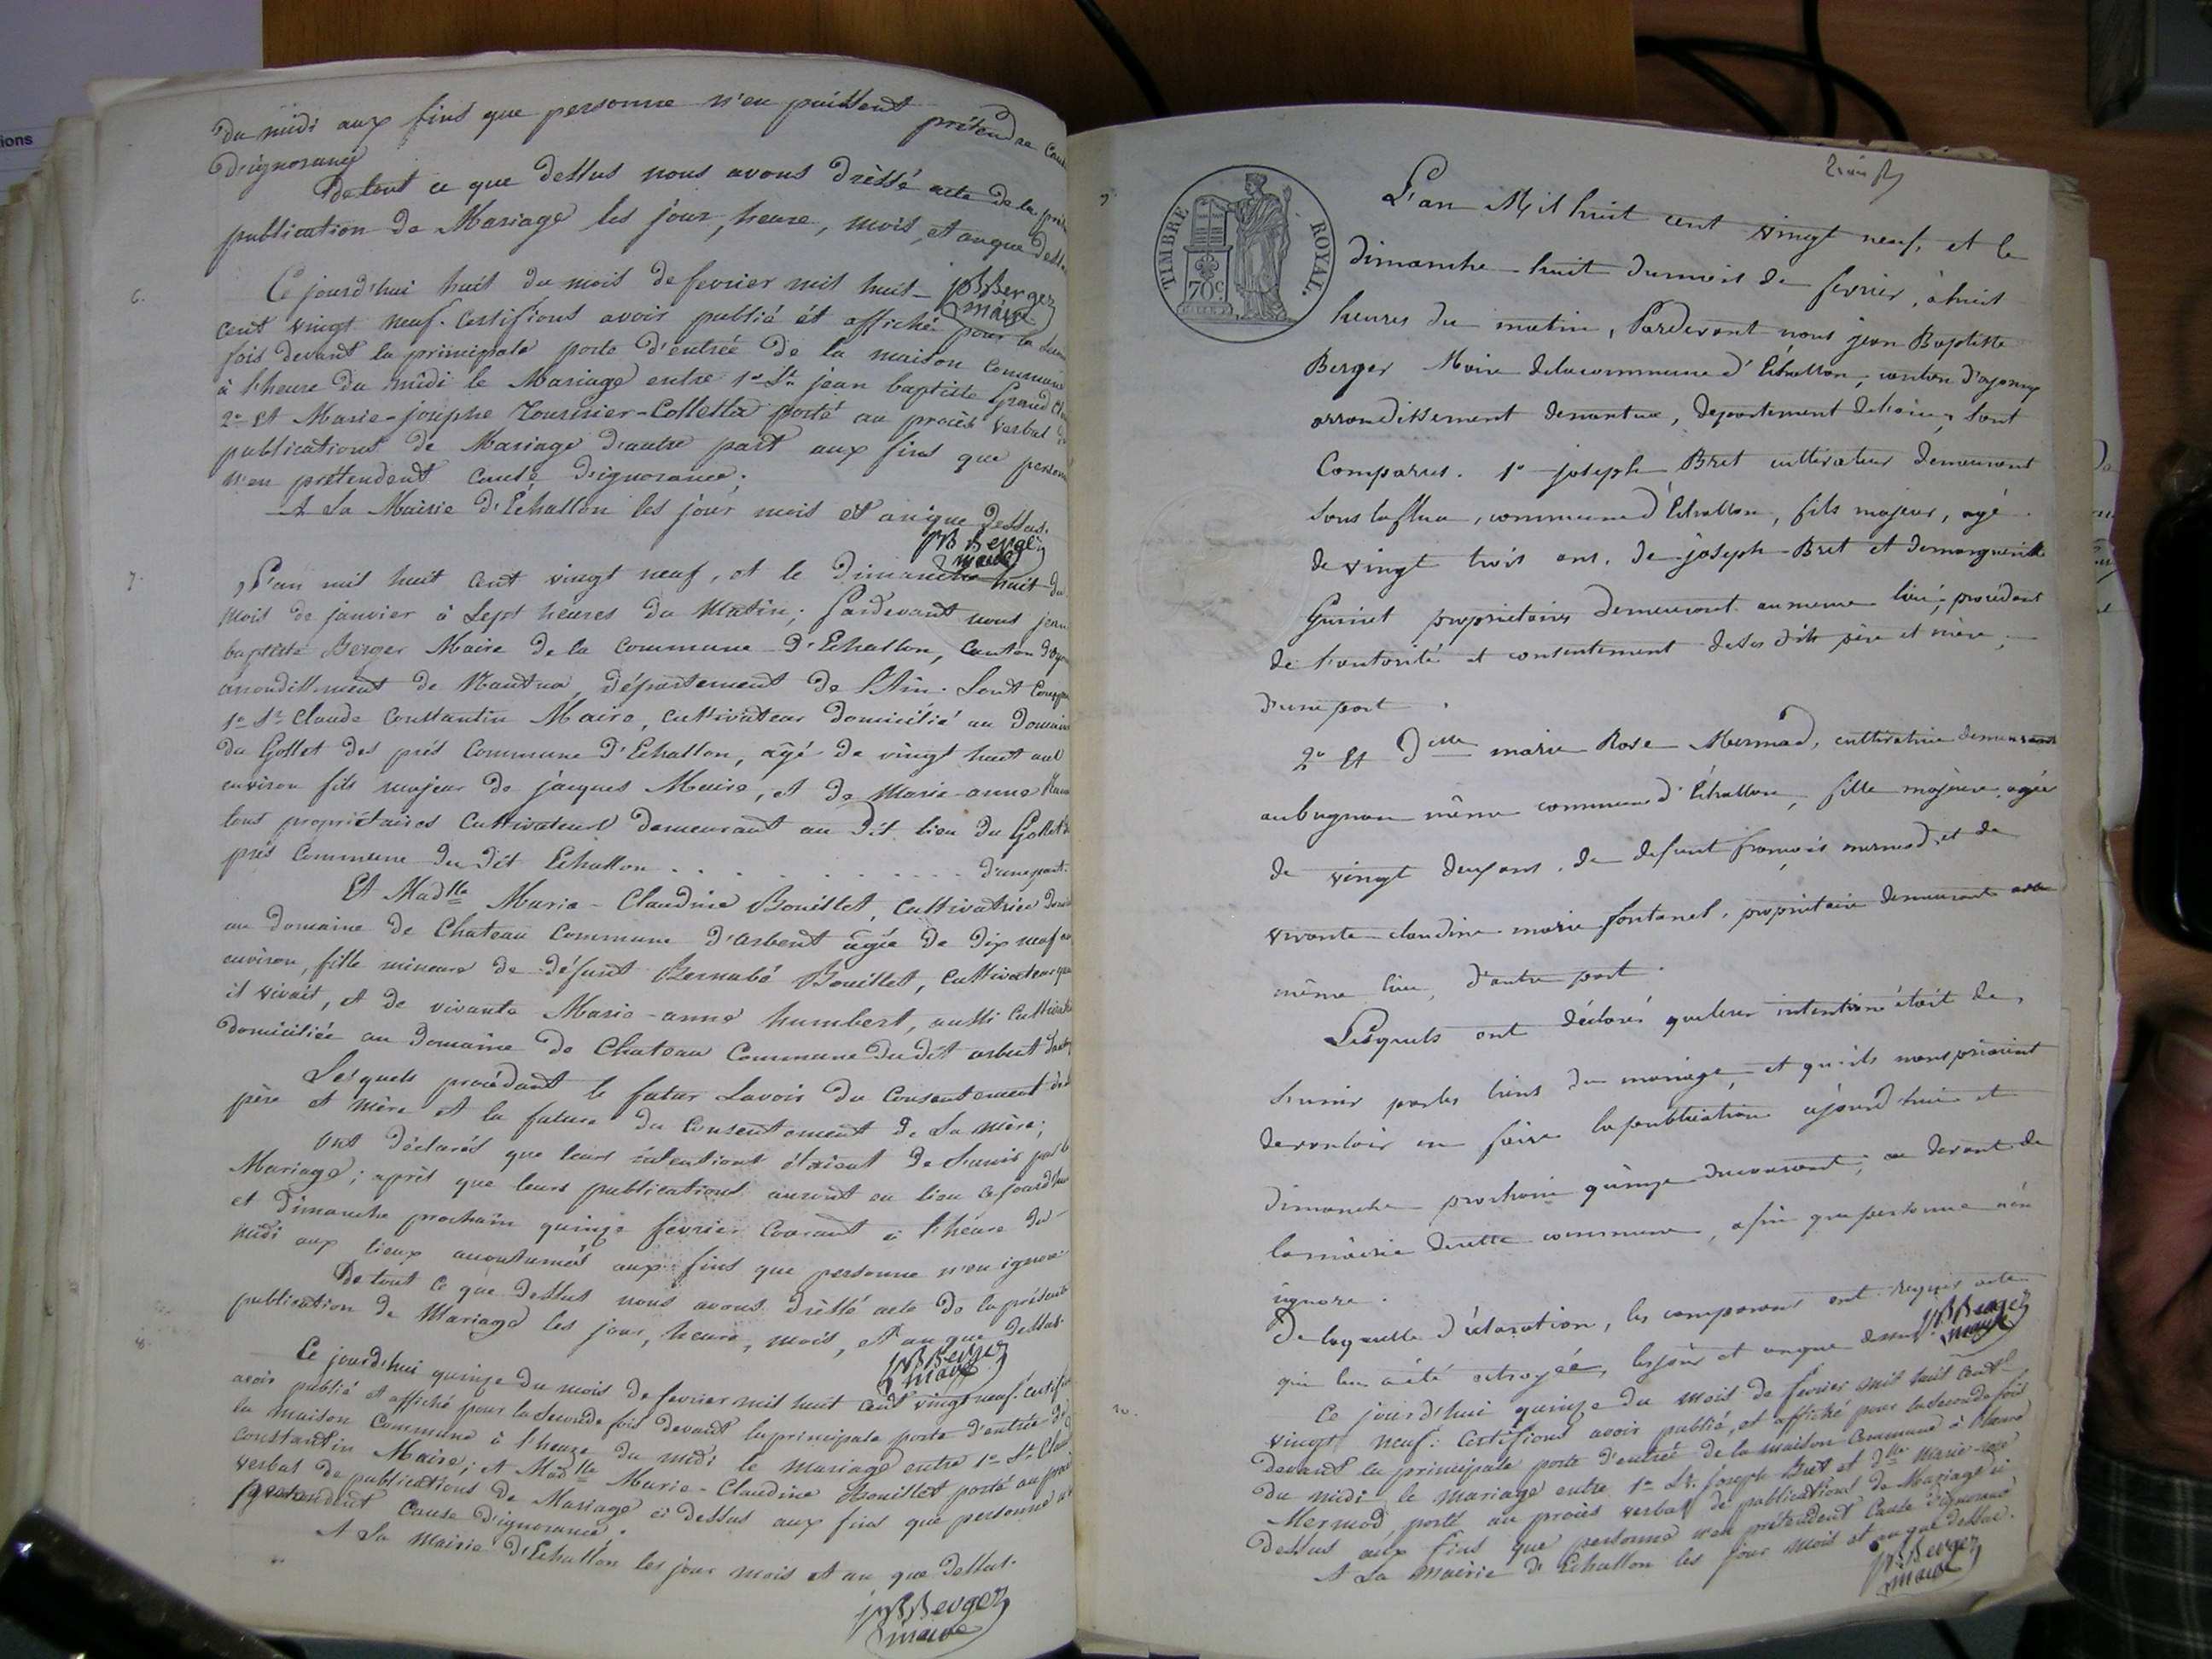 ions
du midi aux fins que personne n'en puissent prétendre cause
d'ignorance
De tout ce que dessus nous avons dréssé acte de la
publication de Mariage les jour, heure, mois, et an que dessus
jB Berger
maire
6.
Ce jourd'hui huit du mois de fevrier mil huit
cent vingt neuf. Certifions avoir publié et affiché pour la
fois devant la principale porte d'entrée de la maison commune
à l'heure du midi le Mariage entre 1º Sr. jean baptiste Grand
2º Et Marie-josephe Tournier-Colletta porté au procès verbal
publications de Mariage d'autre part aux fins que personne
n'en prétendent cause d'ignorance.
A La Mairie d'Echallon les jour mois et an que dessus.
jB Berger
maire
7.
L'an mil huit cent vingt neuf, et le dimanche huit du
mois de janvier à sept heures du matin; Pardevant nous jean
baptiste Berger Maire de la commune d'Echallon, canton
arrondissement de Nantua, département de l'Ain. Sont
1º Sr. Claude Constantin Maire, cultivateur domicilié au domaine
du Gollet des prés commune d'Echallon, agé de vingt huit ans
environ fils majeur de jacques Maire, et de Marie-anne
tous propriétaires cultivateurs demeurant au dit lieu du Gollet
prés commune du dit Echallon . . . . . . . . . d'une part.
Et Madlle Marie-Claudine Bouillet, cultivatrice
au domaine de Chateau commune d'arbent âgée de dix neuf
environ, fille mineure de défunt Bernabé Bouillet, cultivateur
il vivait, et de vivante Marie-anne humbert, aussi
domiciliée au domaine de Chateau commune du dit arbent
Lesquels procédant le futur savoir du consentement
père et mère et la future du consentement de sa mère;
ont déclarés que leurs intentions étaient de s'unir par le
Mariage; après que leurs publications auront eu lieu ce jourd'hui
et dimanche prochain quinze fevrier courant à l'heure du
midi aux lieux accoutumés aux fins que personne n'en ignore.
De tout ce que dessus nous avons dréssé acte de la présente
publication de Mariage les jour, heure, mois, et an que dessus.
jB Berger
maire
8.
Ce jourd'hui quinze du mois de fevrier mil huit cent vingt neuf. Certifions
avoir publié et affiché pour la seconde fois devant la principale porte d'entrée
la maison commune à l'heure du midi le mariage entre 1º Sr. Claude
constantin Maire; et Madlle Marie-Claudine Bouillet porté au
verbal de publications de Mariage ci dessus aux fins que personne
prétendent cause d'ignorance.
A La mairie d'Echallon les jour mois et an que dessus.
jB Berger
maire
9.
TIMBRE ROYAL.
70c
L'an Mil huit cent vingt neuf, et le
dimanche huit du mois de fevrier, à huit
heures du matin, Pardevant nous jean Baptiste
Berger Maire de la commune d'Echallon, canton d'oyonnax
arrondissement de nantua, département de l'ain, Sont
Comparus. 1º joseph Bret cultivateur demeurant
sous la flua, commune d'Echallon, fils majeur, agé
de vingt trois ans. de joseph Bret et de marguerite
Guinet propriétaires demeurant au meme lieu, procédant
de l'autorité et consentement de ses dits père et mère,
d'une part.
2º Et Delle marie Rose Mermod, cultivatrice demeurant
au bugnon même commune d'Echallon, fille majeure agée
de vingt deux ans. de defunt françois mermod, et de
vivante claudine marie fontanel, propriétaire demeurant
même lieu, d'autre part.
Lesquels ont déclarés que leur intention était de
s'unir par les liens du mariage, et qu'ils nous priaient
de vouloir en faire la publication ajourd'hui et
dimanche prochain quinze du courant, au devant de
la mairie de cette commune, afin que personne n'en
ignore.
De laquelle déclaration, les comparans ont requis acte
qui leur a été octroyée, les jour et an que dessus.
jB Berger
maire
10.
Ce jourd'hui quinze du mois de fevrier mil huit cent
vingt neuf: Certifions avoir publié, et affiché pour la seconde fois
devant la principale porte d'entrée de la maison commune à l'heure
du midi le mariage entre 1º Sr. joseph Bret et Dlle Marie-rose
Mermod, porté au procès verbal de publications de Mariage ci
dessus aux fins que personne n'en prétendent cause d'ignorance
A La mairie d'Echallon les jour mois et an que dessus.
jB Berger
maire